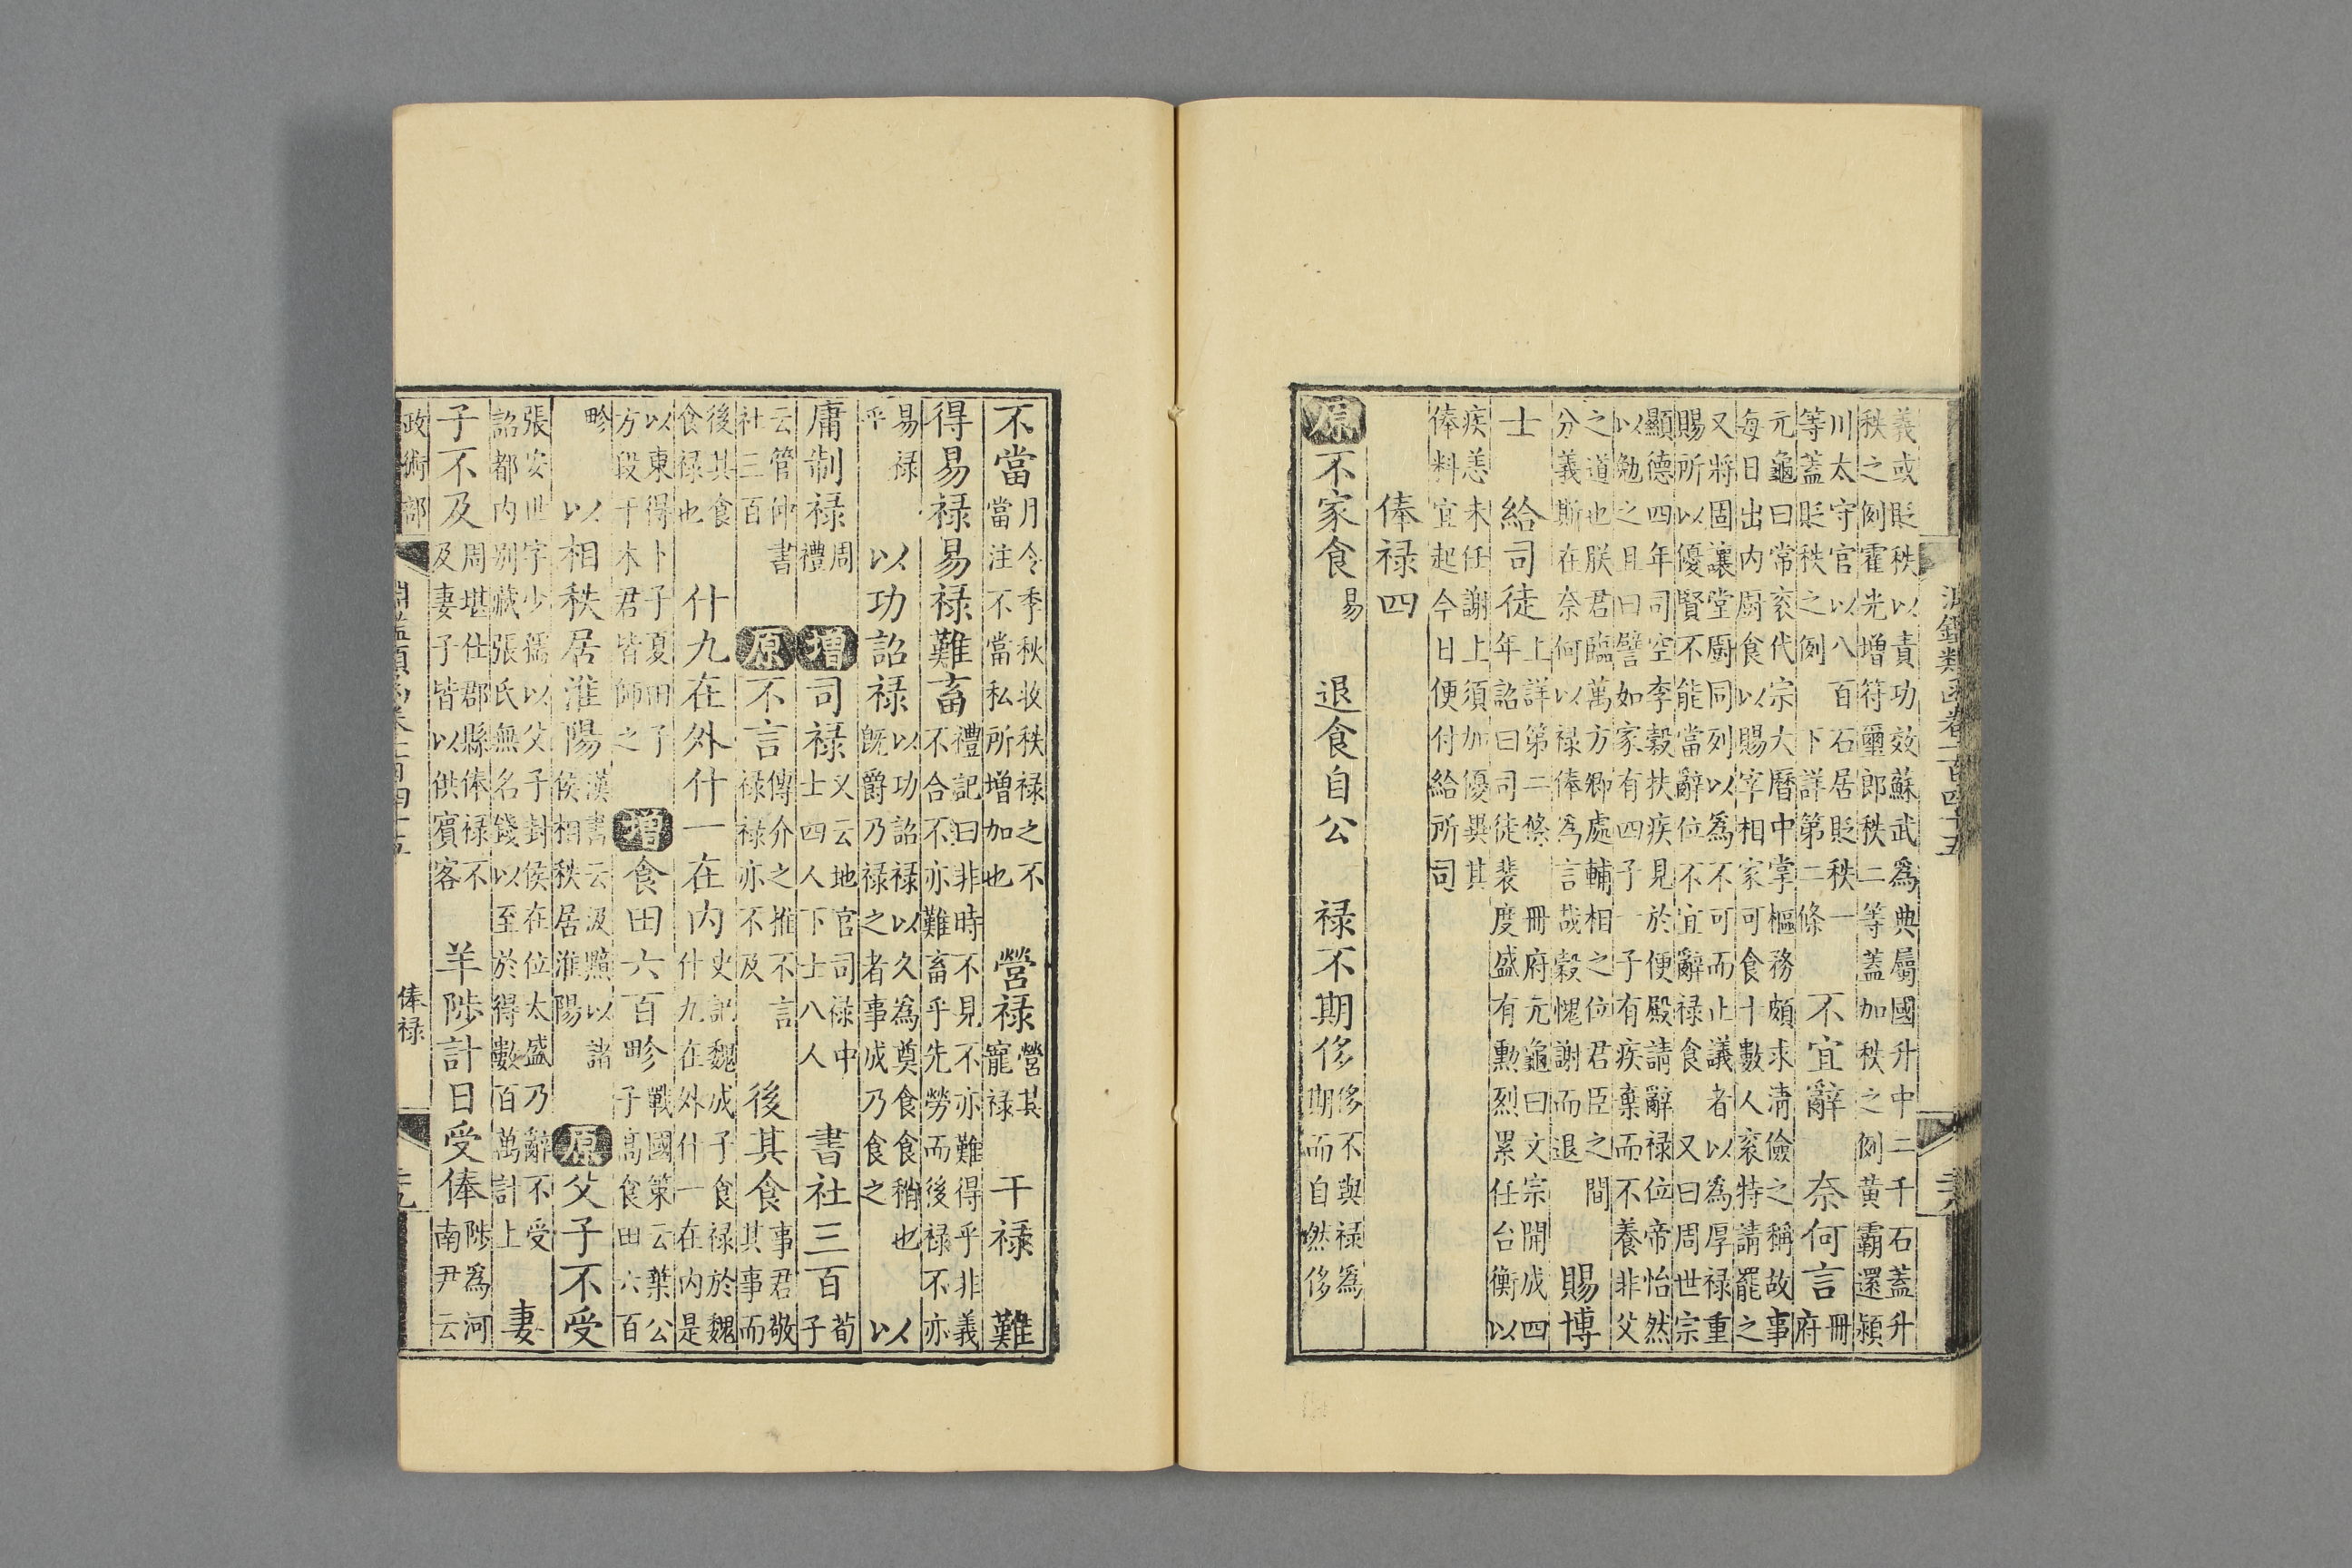 淵鑑類函卷一百四十五
義或貶秩以責功效蘇武爲典屬國升中二千石蓋升
秩之例霍光增符璽郎秩二等蓋加秩之例黃霸還潁
川太守官以八百石居貶秩一
等蓋貶秩之例下詳第二條
不宜辭
奈何言
冊
府
元龜曰常衮代宗大曆中掌樞務頗求淸儉之稱故事
每日出內廚食以賜宰相家可食十數人衮特請罷之
又將固讓堂廚同列以爲不可而止議者以爲厚祿重
賜所以優賢不能當辭位不宜辭祿食又曰周世宗
顯德四年司空李穀扶疾見於便殿請辭祿位帝怡然
以勉之且曰譬如家有四子一子有疾棄而不養非父
之道也朕君臨萬方卿處輔相之位君臣之間
分義斯在奈何以祿俸爲言哉穀愧謝而退
賜博
士
給司徒
上詳第二條冊府元龜曰文宗開成四
年詔曰司徒裴度盛有勳烈累任台衡以
疾恙未任謝上須加優異其
俸料宜起今日便付給所司
俸祿四
原不家食易
退食自公
祿不期侈
侈不與祿爲
期而自然侈
不當
月令季秋收秩祿之不
當注不當私所增加也
營祿
營其
寵祿
干祿
難
得易祿易祿難畜
禮記曰非時不見不亦難得乎非義
不合不亦難畜乎先勞而後祿不亦
易祿
乎
以功詔祿
以功詔祿以久爲奠食食稍也
旣爵乃祿之者事成乃食之
以
庸制祿
周
禮
增司祿
又云地官司祿中
士四人下士八人
書社三百
荀
子
云管仲書
社三百
原不言祿
傳介之推不言
祿祿亦不及
後其食
事君敬
其事而
後其食
食祿也
什九在外什一在內
史記魏成子食祿於魏
什九在外什一在內是
以東得卜子夏田子
方段干木君皆師之
增食田六百畛
戰國策云葉公
子高食田六百
畛
以相秩居淮陽
漢書云汲黯以諸
侯相秩居淮陽
原父子不受
張安世字少孺以父子封侯在位太盛乃辭不受
詔都內別藏張氏無名錢以至於得數百萬計上
妻
子不及
周堪仕郡縣俸祿不
及妻子皆以供賓客
羊陟計日受俸
陟爲河
南尹云
政術部
俸祿